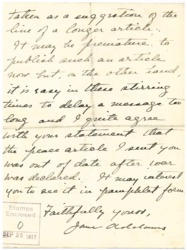 taken as a suggestion of the
line of a longer article.
It may be premature to
publish such an article
now but, on the other hand,
it is easy in these stirring
times to delay a message too
long and I quite agree
with your statement that
the peace article I sent you
was out of date after war
was declared. It may interest
you to see it in pamphlet form
Faithfully yours,
Jane Addams
Stamps
Enclosed
0
SEP 25 1917